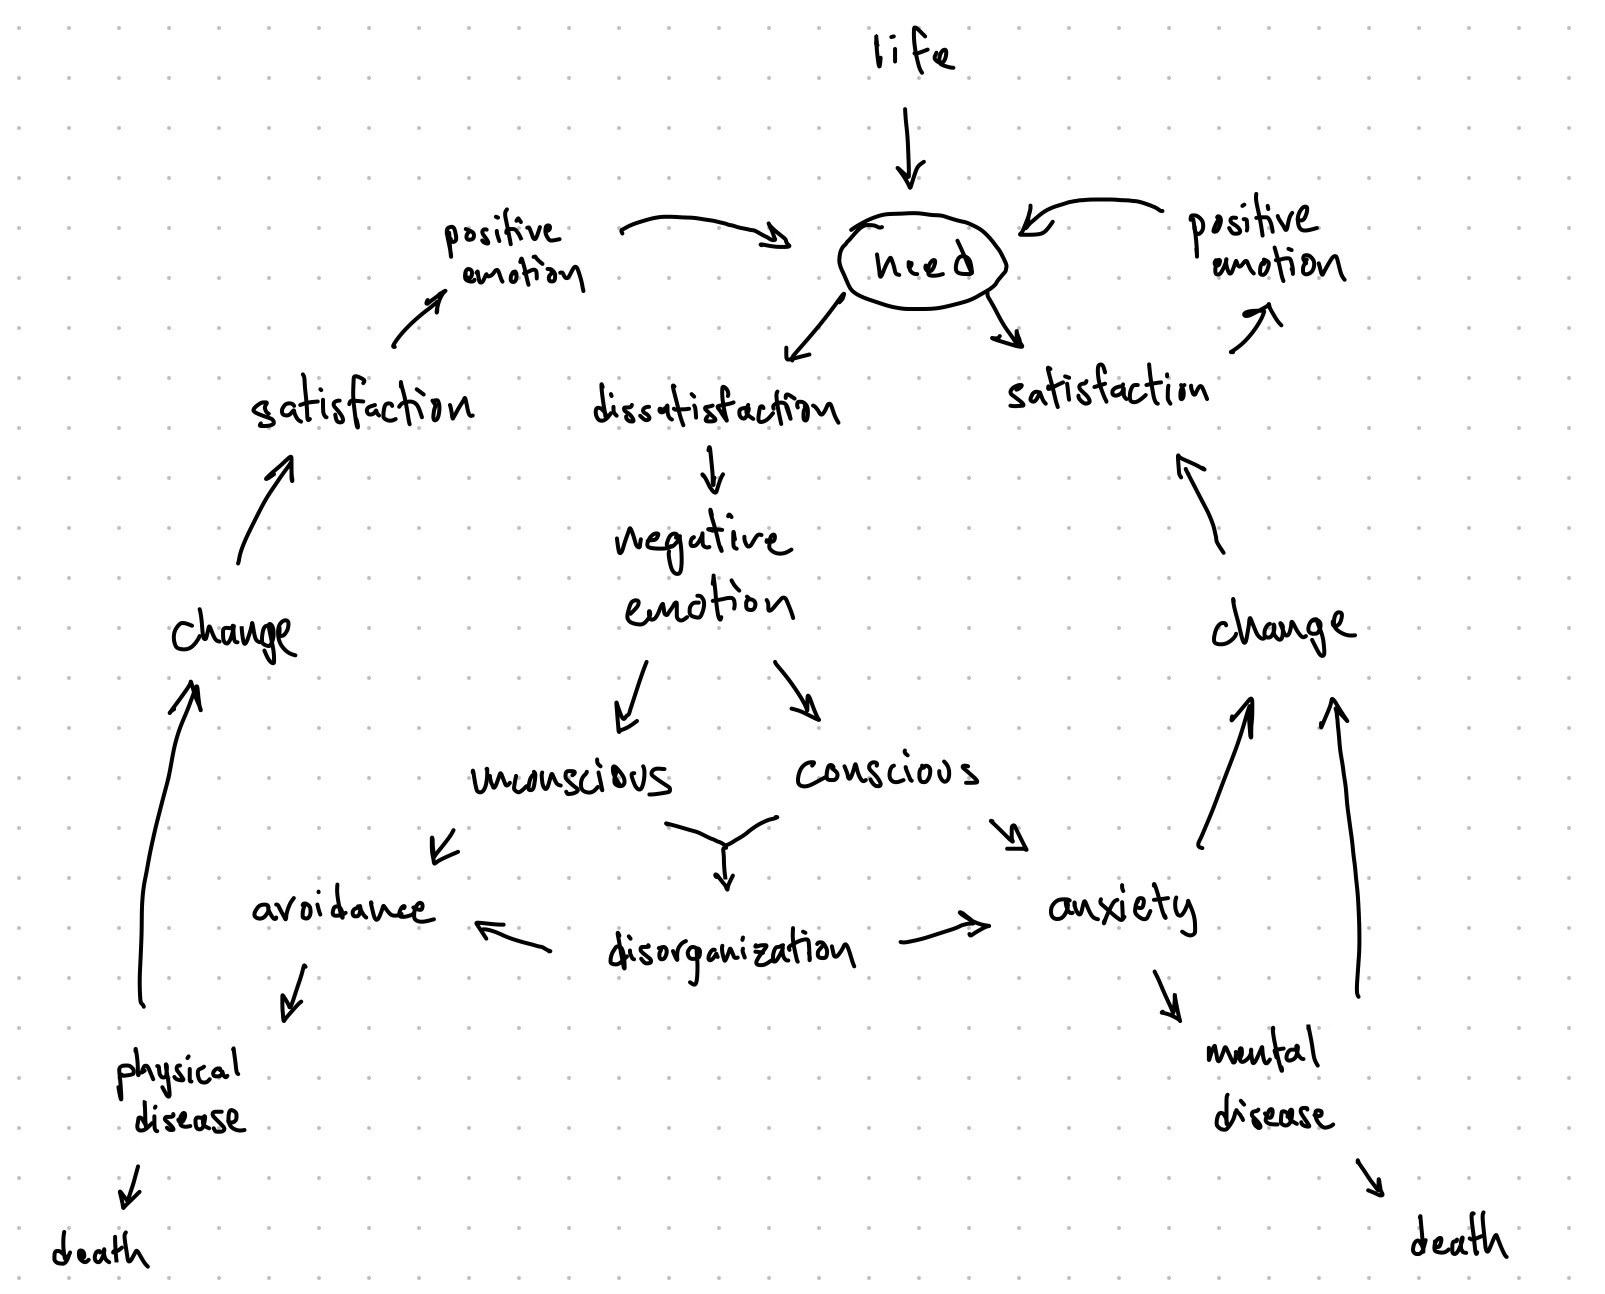 life
positive
emotion
need
positive
emotion
satisfaction
dissatisfaction
satisfaction
negative
emotion
change
change
unconscious
conscious
avoidance
disorganization
anxiety
physical
disease
mental
disease
death
death